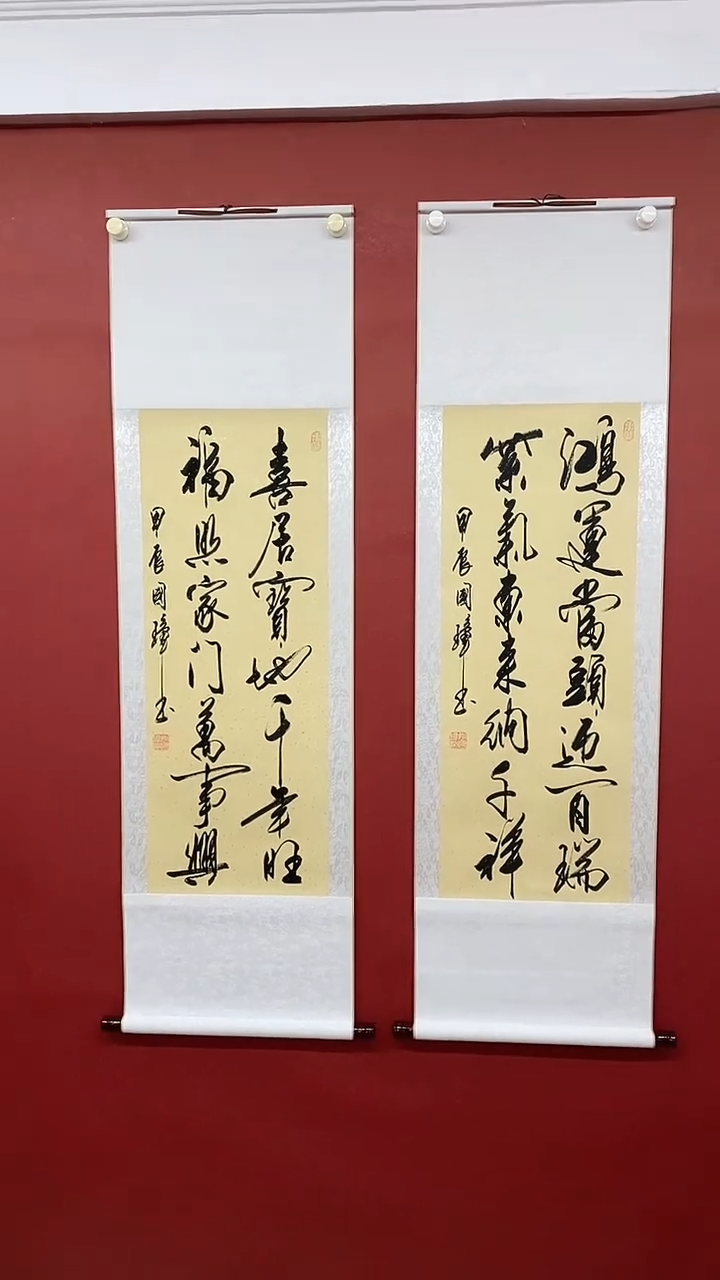 鴻運當頭迎百瑞
紫氣東来納千祥
甲辰國璋书
喜居寶地千年旺
福照家门萬事興
甲辰國璋书